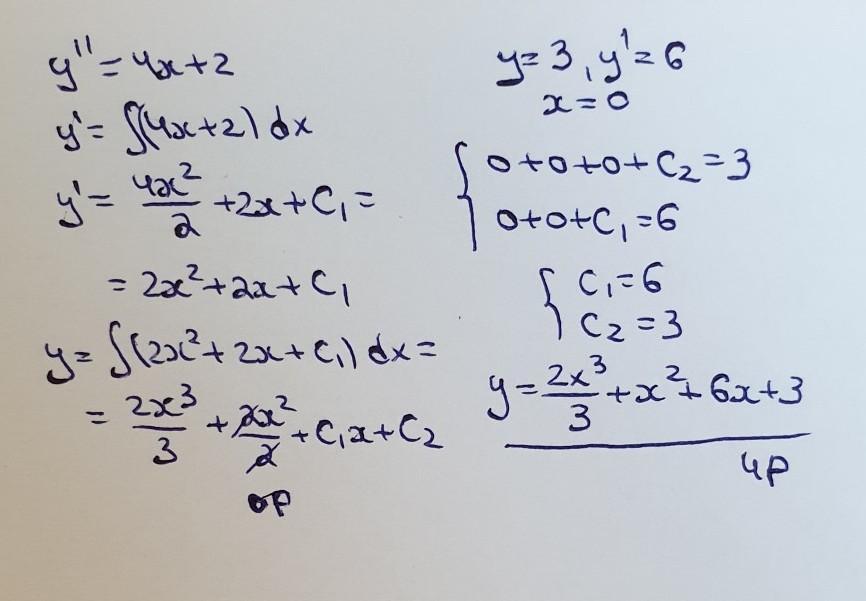 y'' = 4x + 2
y' = ∫(4x + 2) dx
y' = 4x²/2 + 2x + C₁ =
= 2x² + 2x + C₁
y = ∫(2x² + 2x + C₁) dx =
= 2x³/3 + 2x²/2 + C₁x + C₂
y = 3, y' = 6
x = 0
{ 0 + 0 + 0 + C₂ = 3
0 + 0 + C₁ = 6
{ C₁ = 6
C₂ = 3
y = 2x³/3 + x² + 6x + 3
4p